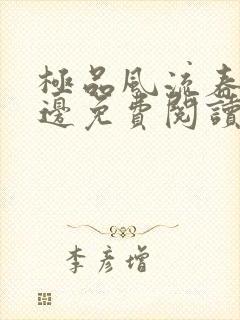 極品風流春
邊免費閱讀
李彥增